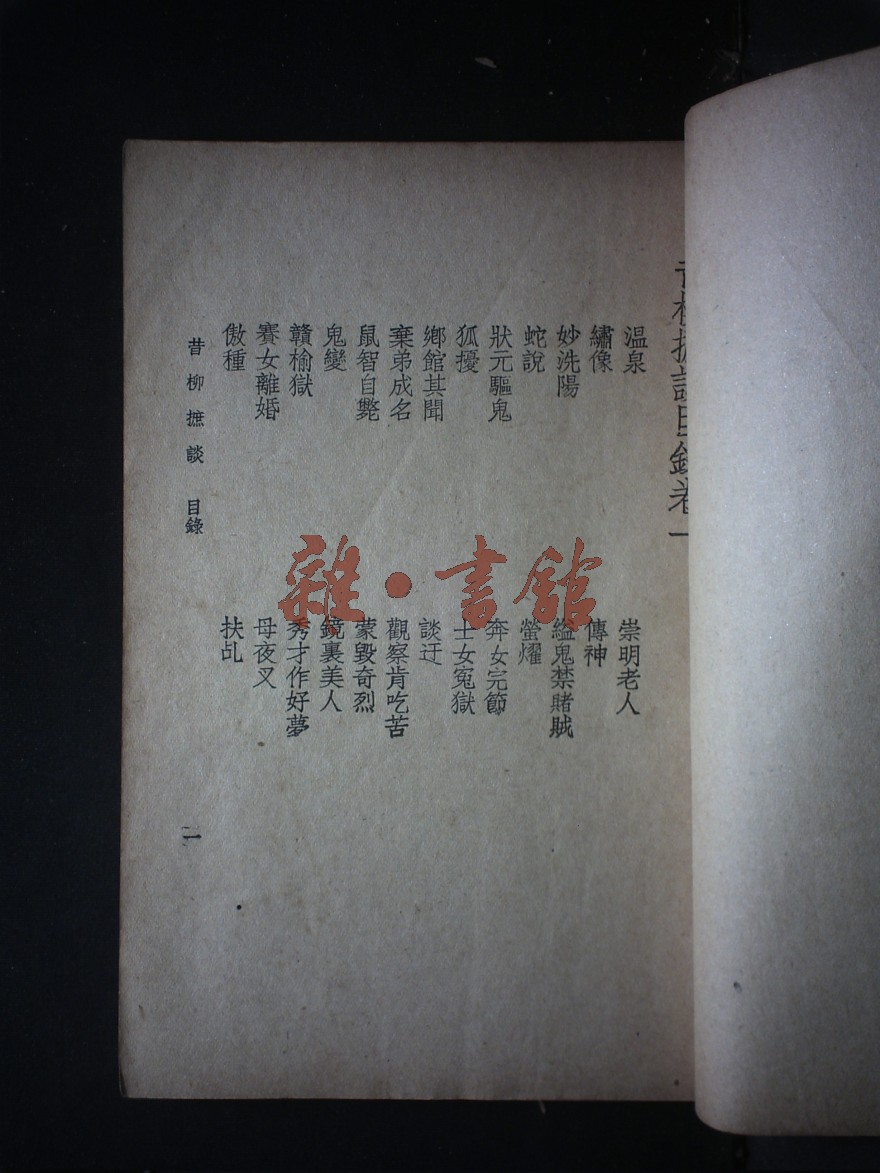 昔柳摭談目錄卷一
溫泉
崇明老人
繡像
傳神
妙洗陽
縊鬼禁賭賊
蛇說
螢燿
狀元驅鬼
奔女完節
狐擾
士女冤獄
鄉館其聞
談迂
棄弟成名
觀察肯吃苦
鼠智自斃
蒙毀奇烈
鬼孌
鏡裏美人
贛榆獄
秀才作好夢
賽女離婚
母夜叉
傲種
扶乩
昔柳摭談 目錄
一
雜·書館